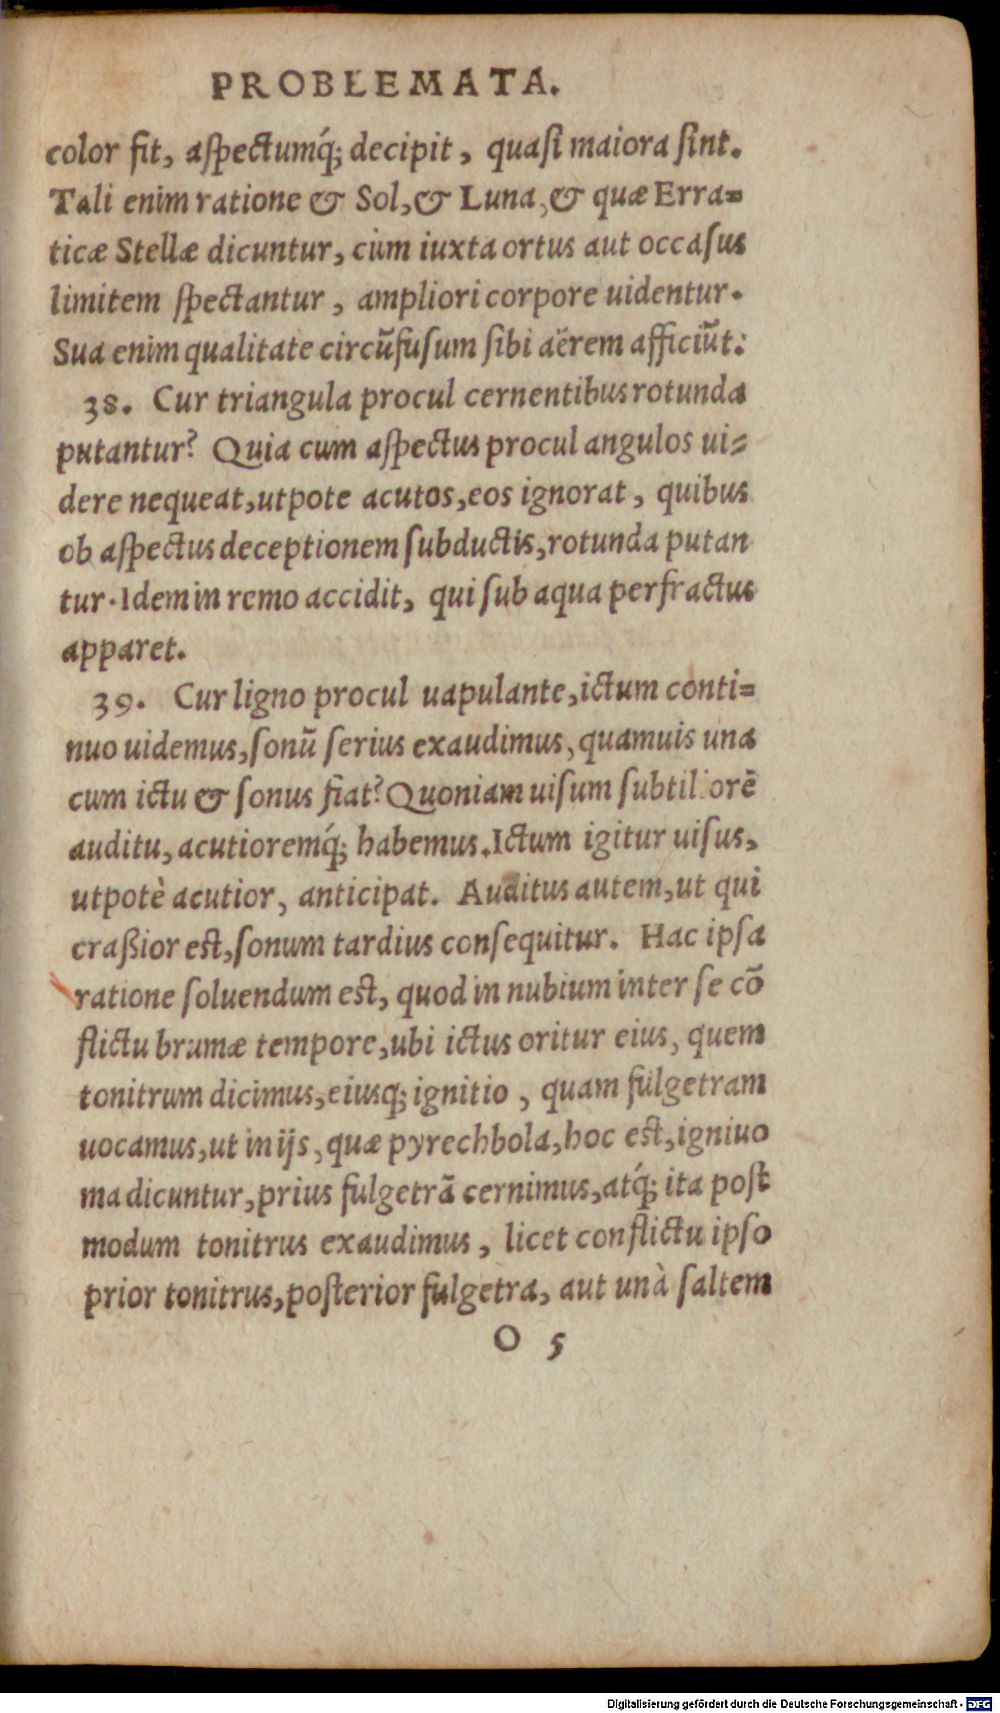 PROBLEMATA.
color fit, aſpectumq́; decipit, quaſi maiora ſint.
Tali enim ratione & Sol, & Luna, & quæ Erra=
ticæ Stellæ dicuntur, cùm iuxta ortus aut occaſus
limitem ſpectantur, ampliori corpore uidentur.
Sua enim qualitate circũfuſum ſibi aërem afficiũt.
38. Cur triangula procul cernentibus rotunda
putantur? Quia cum aſpectus procul angulos ui=
dere nequeat, utpote acutos, eos ignorat, quibus
ob aſpectus deceptionem ſubductis, rotunda putan
tur. Idem in remo accidit, qui ſub aqua perfractus
apparet.
39. Cur ligno procul uapulante, ictum conti=
nuo uidemus, ſonũ ſerius exaudimus, quamuis una
cum ictu & ſonus fiat? Quoniam uiſum ſubtiliorẽ
auditu, acutioremq́; habemus. Ictum igitur uiſus,
utpotè acutior, anticipat. Auditus autem, ut qui
craßior eſt, ſonum tardius conſequitur. Hac ipſa
ratione ſoluendum eſt, quod in nubium inter ſe cõ
flictu brumæ tempore, ubi ictus oritur eius, quem
tonitrum dicimus, eiusq; ignitio, quam fulgetram
uocamus, ut in ijs, quæ pyrechbola, hoc eſt, igniuo
ma dicuntur, prius fulgetrã cernimus, atq́; ita poſt
modum tonitrus exaudimus, licet conflictu ipſo
prior tonitrus, poſterior fulgetra, aut unà ſaltem
O 5
Digitalisierung gefördert durch die Deutsche Forschungsgemeinschaft - DFG